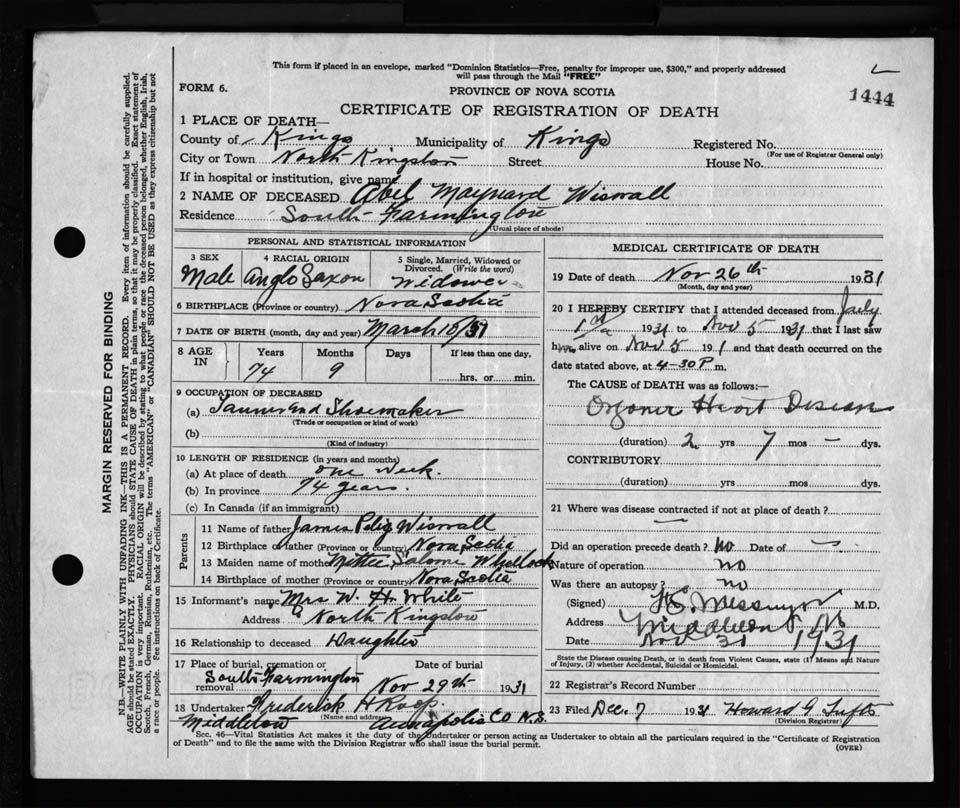 This form if placed in an envelope, marked "Dominion Statistics—Free, penalty for improper use, $300," and properly addressed
will pass through the Mail "FREE"
FORM 6.
PROVINCE OF NOVA SCOTIA
1444
CERTIFICATE OF REGISTRATION OF DEATH
1 PLACE OF DEATH—
County of Kings Municipality of Kings Registered No.
(For use of Registrar General only)
City or Town North Kingston Street House No.
If in hospital or institution, give name
2 NAME OF DECEASED Abel Maynard Wiswall
Residence South Farmington
(Usual place of abode)
PERSONAL AND STATISTICAL INFORMATION
3 SEX 4 RACIAL ORIGIN 5 Single, Married, Widowed or
Divorced. (Write the word)
Male Anglo Saxon Widower
6 BIRTHPLACE (Province or country) Nova Scotia
7 DATE OF BIRTH (month, day and year) March 15/57
8 AGE IN Years Months Days If less than one day,
74 9 hrs. or min.
9 OCCUPATION OF DECEASED
(a) Tanner and Shoemaker
(Trade or occupation or kind of work)
(b)
(Kind of industry)
10 LENGTH OF RESIDENCE (in years and months)
(a) At place of death one week.
(b) In province 74 years.
(c) In Canada (if an immigrant)
Parents
11 Name of father James Peleg Wiswall
12 Birthplace of father (Province or country) Nova Scotia
13 Maiden name of mother Salome Whellock
14 Birthplace of mother (Province or country) Nova Scotia
15 Informant's name Mrs W. H. White
Address North Kingston
16 Relationship to deceased Daughter
17 Place of burial, cremation or removal Date of burial
South Farmington Nov 29th 1931
18 Undertaker Frederick H Roop
(Name and address)
Middleton Annapolis Co N.S.
MEDICAL CERTIFICATE OF DEATH
19 Date of death Nov 26th 1931
(Month, day and year)
20 I HEREBY CERTIFY that I attended deceased from July
1st 1931 to Nov 5 1931 that I last saw
him alive on Nov 5 191 and that death occurred on the
date stated above, at 4-30 P m.
The CAUSE OF DEATH was as follows:—
Organic Heart Disease
(duration) 2 yrs 7 mos – dys.
CONTRIBUTORY
(duration) yrs mos dys.
21 Where was disease contracted if not at place of death?
—
Did an operation precede death? No Date of —
Nature of operation no
Was there an autopsy? no
(Signed) M.D.
Address Middleton N.S.
Date Nov 31 1931
State the Disease causing Death, or in death from Violent Causes, state (1) Means and Nature
of Injury, (2) whether Accidental, Suicidal or Homicidal.
22 Registrar's Record Number
23 Filed Dec. 7 1931 Howard G Tufts
(Division Registrar)
Sec. 46—Vital Statistics Act makes it the duty of the Undertaker or person acting as Undertaker to obtain all the particulars required in the "Certificate of Registration
of Death" and to file the same with the Division Registrar who shall issue the burial permit.
(OVER)
MARGIN RESERVED FOR BINDING
N.B.—WRITE PLAINLY WITH UNFADING INK—THIS IS A PERMANENT RECORD. Every item of information should be carefully supplied.
AGE should be stated EXACTLY. PHYSICIANS should STATE CAUSE OF DEATH in plain terms, so that it may be properly classified. Exact statement of
OCCUPATION is very important. RACIAL ORIGIN will be described by stating to what people or race the deceased person belonged, whether English, Irish,
Scotch, French, German, Russian, Ruthenian, etc. The terms "AMERICAN" or "CANADIAN" SHOULD NOT BE USED as they express citizenship but not
a race or people. Fee instructions on back of Certificate.